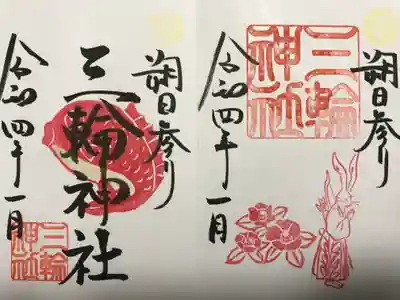 朔日参り
三輪神社
令和四年一月
三輪
神社
朔日参り
三輪
神社
令和四年一月